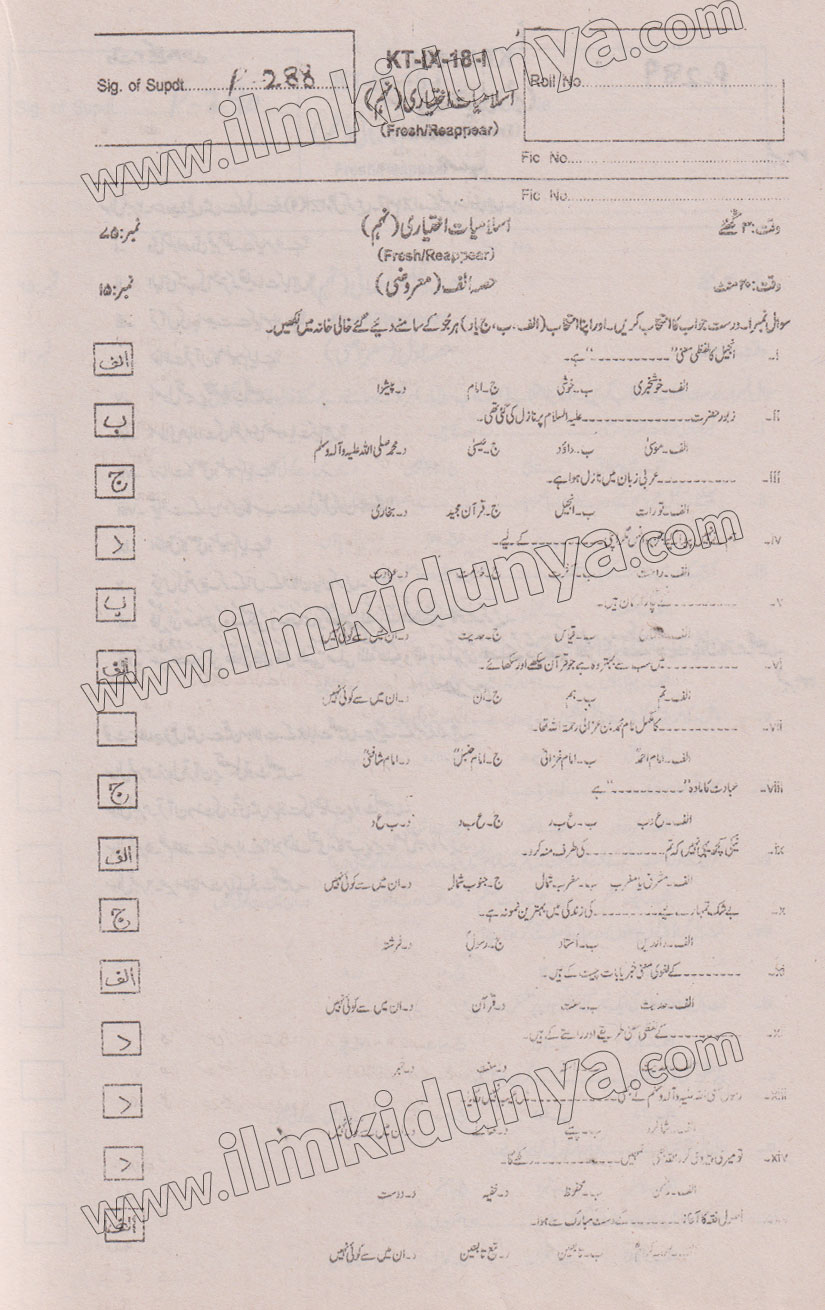 KT-IX-18-I
Sig. of Supdt. P-288
Roll No.
اسلامیات اختیاری (نہم)
(Fresh/Reappear)
Fic No.
Fic No.
وقت: ۳ گھنٹے
اسلامیات اختیاری (نہم)
نمبر: ۷۵
(Fresh/Reappear)
وقت: ۲۰ منٹ
حصہ الف (معروضی)
نمبر: ۱۵
سوال نمبر ا۔ درست جواب کا انتخاب کریں۔ اور اپنا انتخاب (الف، ب، ج یا د) ہر جُز کے سامنے دیئے گئے خالی خانہ میں لکھیں۔
i۔ انجیل کا لفظی معنی "----------" ہے۔ الف
الف۔ خوشخبری ب۔ خوشی ج۔ امام د۔ پیشوا
ii۔ زبور حضرت ---------- علیہ السلام پر نازل کی گئی تھی۔ ب
الف۔ موسیٰ ب۔ داؤد ج۔ عیسیٰ د۔ محمد صلی اللہ علیہ وآلہ وسلم
iii۔ ---------- عربی زبان میں نازل ہوا ہے۔ ج
الف۔ تورات ب۔ انجیل ج۔ قرآن مجید د۔ بخاری
iv۔ ---------- کے لیے۔ د
v۔ ---------- کے چار ارکان ہیں۔ ب
ب۔ قیاس ج۔ حدیث د۔ ان میں سے کوئی نہیں
vi۔ ---------- میں سب سے بہتر وہ ہے جو قرآن سیکھے اور سکھائے۔ الف
الف۔ تم ب۔ ہم ج۔ اُن د۔ ان میں سے کوئی نہیں
vii۔ ---------- کا مکمل نام محمد بن غزالی رحمۃ اللہ تھا۔
الف۔ امام احمدؒ ب۔ امام غزالیؒ ج۔ امام حنبلؒ د۔ امام شافعیؒ
viii۔ عبادت کا مادہ "----------" ہے ج
ج۔ ع ب د د۔ ب ع د
ix۔ نیکی کچھ یہی نہیں کہ تم ---------- کی طرف منہ کرو۔ الف
الف۔ مشرق یا مغرب ب۔ مغرب شمال ج۔ جنوب شمال د۔ ان میں سے کوئی نہیں
x۔ بے شک تمہارے لیے ---------- کی زندگی میں بہترین نمونہ ہے۔ ج
الف۔ والدین ب۔ اُستاد ج۔ رسولؐ د۔ فرشتہ
xi۔ ---------- کے لغوی معنی خبر یا بات چیت کے ہیں۔ الف
الف۔ حدیث ب۔ سنت د۔ قرآن د۔ ان میں سے کوئی نہیں
---------- کے لفظی معنی طریقے اور راستے کے ہیں۔ د
د۔ سنت د۔ خبر
xiii۔ د
د۔ ان میں سے کوئی نہیں
xiv۔ ---------- رکھے گا۔ د
ب۔ محفوظ د۔ خفیہ د۔ دوست
اصول فقہ کا آغاز ---------- کے دست مبارک سے ہوا۔ الف
ب۔ تابعین د۔ تبع تابعین د۔ ان میں سے کوئی نہیں
www.ilmkidunya.com
www.ilmkidunya.com
www.ilmkidunya.com